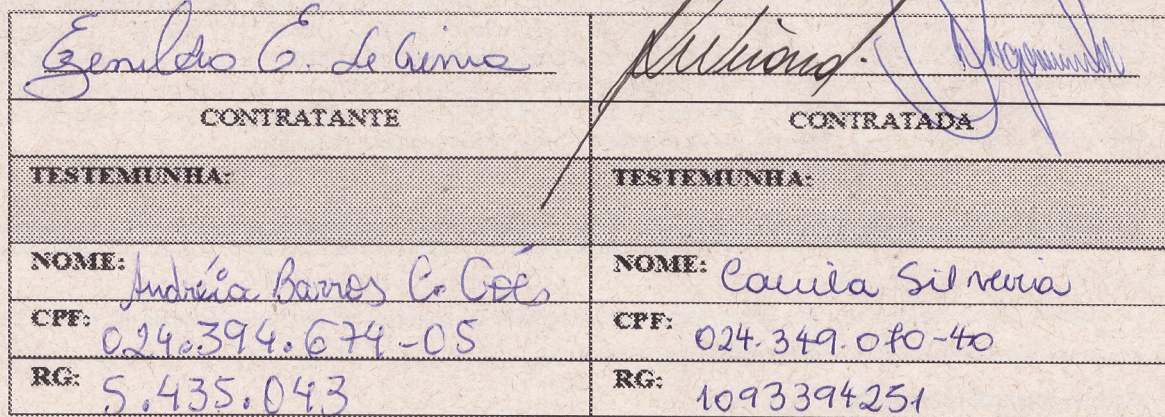 Ezenildo E. de Lima
CONTRATANTE CONTRATADA
TESTEMUNHA: TESTEMUNHA:
NOME: Andréia Barros C. Goé NOME: Camila Silveira
CPF: 024.394.674-05 CPF: 024.349.070-40
RG: 5.435.043 RG: 1093394251